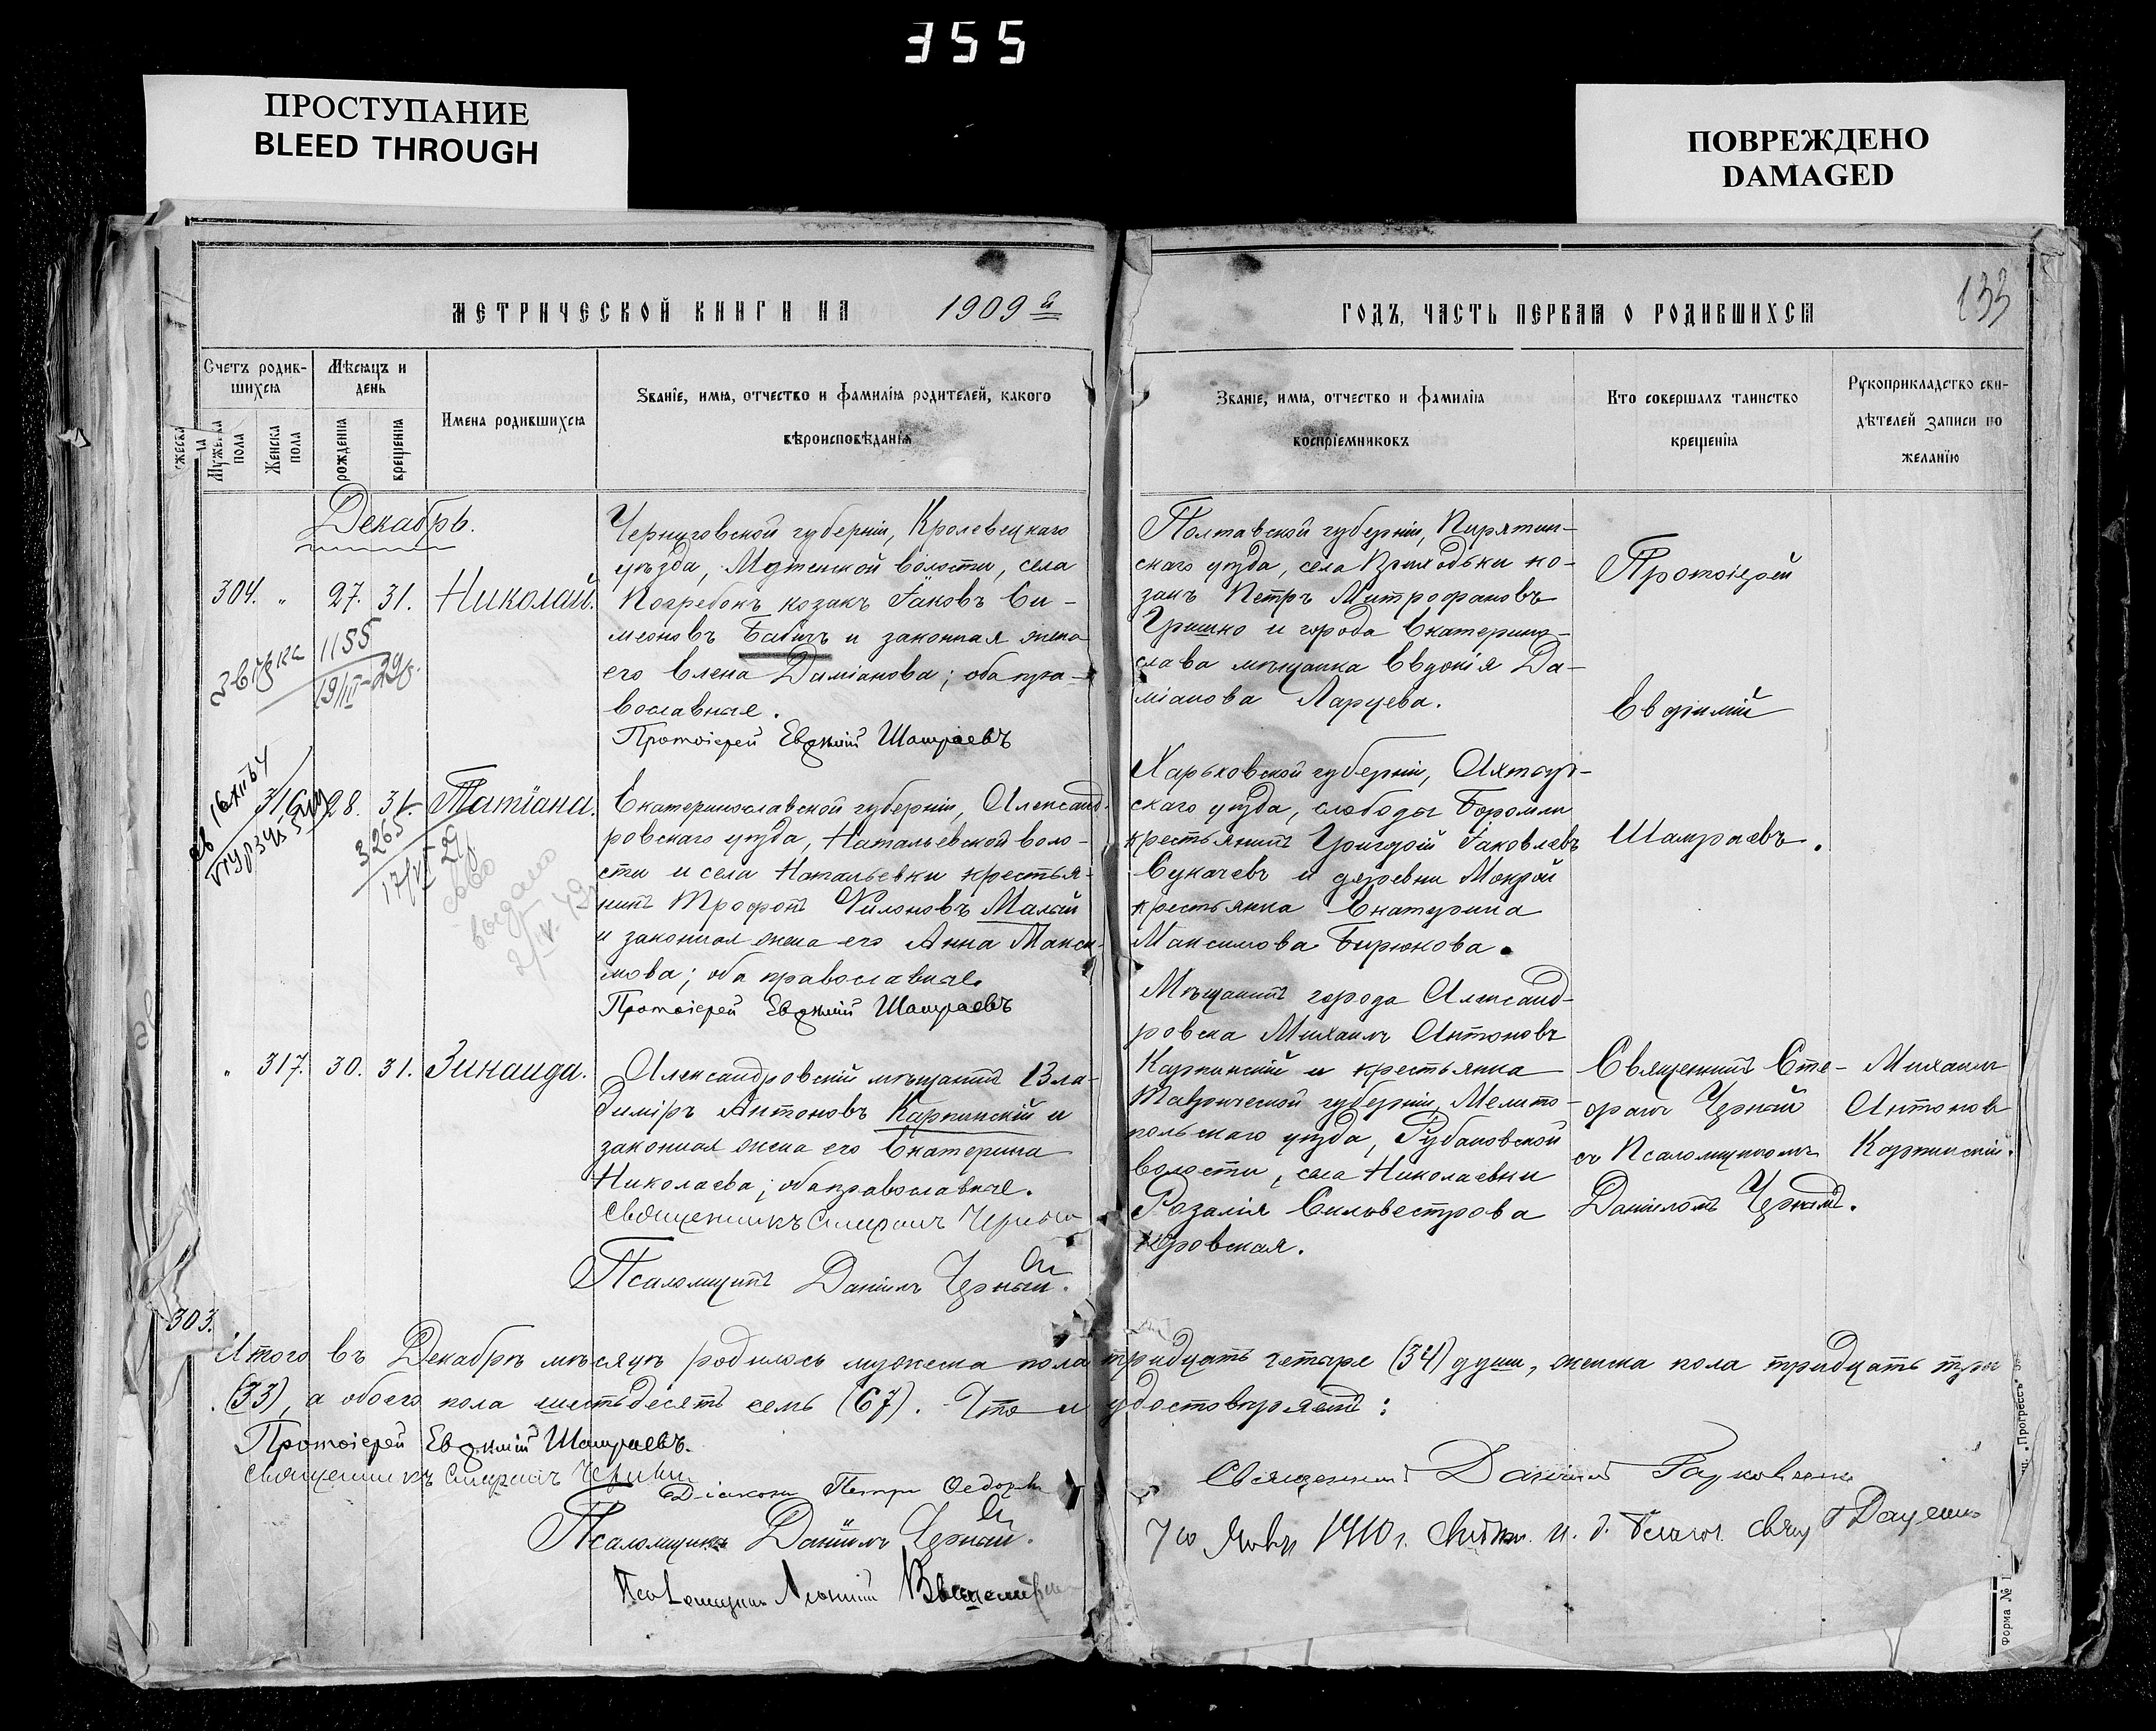 355
ПРОСТУПАНИЕ
BLEED THROUGH
ПОВРЕЖДЕНО
DAMAGED
133
МЕТРИЧЕСКОЙ КНИГИ НА 1909 й
ГОДЪ, ЧАСТЬ ПЕРВАЯ О РОДИВШИХСЯ
Счетъ родив-
шихся
Мужеска пола
Женска пола
Мѣсяцъ и
день
рожденія
крещенія
Имена родившихся
Званіе, имя, отчество и фамилія родителей, какого
вѣроисповѣданія
Званіе, имя, отчество и фамилія
воспріемниковъ
Кто совершалъ таинство
крещенія
Рукоприкладство сви-
дѣтелей записи по
желанію
Декабрь.
304. " 27. 31. Николай.
1155
19/III-29г.
Черниговской губерніи, Кролевецкаго
уѣзда, волости, села
Погребокъ козакъ Іаковъ Си-
меоновъ Бабичъ и законная жена
его Елена Даміанова; оба пра-
вославные.
Протоіерей Евфимій Шамраевъ
Полтавской губерніи, Пирятин-
скаго уѣзда, села Приходьки ко-
закъ Петръ Митрофановъ
Гришко и города Екатерино-
слава мѣщанка Евдокія Да-
міанова Ларцева.
Протоіерей
Евфимій
Шамраевъ.
316. 28. 31. Татіана.
3265
Екатеринославской губерніи, Александ-
ровскаго уѣзда, Натальевской воло-
сти и села Натальевки крестья-
нинъ Трофимъ Филоновъ Малый
и законная жена его Анна Макси-
мова; оба православные.
Протоіерей Евфимій Шамраевъ
Харьковской губерніи, Ахтыр-
скаго уѣзда, слободы Боромли
крестьянинъ Григорій Іаковлевъ
Сукачевъ и деревни Мокрой
крестьянка Екатерина
Максимова Бирюкова.
" 317. 30. 31. Зинаида.
Александровскій мѣщанинъ Вла-
диміръ Антоновъ Карпинскій и
законная жена его Екатерина
Николаева; оба православные.
Священникъ Стефанъ Черный
Псаломщикъ Даніилъ Черный.
Мѣщанинъ города Александ-
ровска Михаилъ Антоновъ
Карпинскій и крестьянка
Таврической губерніи, Мелито-
польскаго уѣзда, Рубановской
волости, села Николаевки
Розалія Сильвестрова
Священникъ Сте-
фанъ Черный
съ Псаломщикомъ
Даніиломъ Чернымъ.
Михаилъ
Антоновъ
Карпинскій.
303.
Итого въ Декабрѣ мѣсяцѣ родилось мужеска пола тридцать четыре (34) души, женска пола тридцать три
(33), а обоего пола шестьдесятъ семь (67). Что и удостовѣряемъ:
Протоіерей Евфимій Шамраевъ.
Священникъ Стефанъ Черный
Діаконъ Петръ Федоровъ
Псаломщикъ Даніилъ Черный.
Псаломщикъ
Священникъ Даніилъ
1910 г.
"Прогрессъ"
Форма № 1